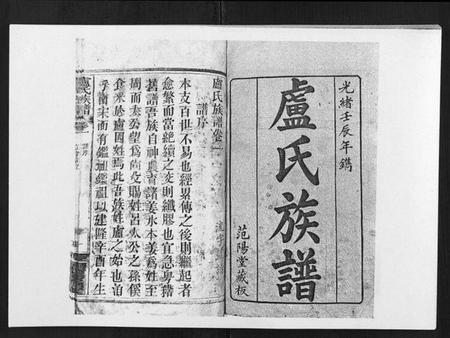 光緒壬辰年鐫
盧氏族譜
范陽堂藏板
盧氏族譜卷一
譜序
本支百世不易也經累傳之後則繼起者
愈繁而當絕續之交則纖膠也宜急
舊譜吾族自神農者諸姜水本姜為姓至
周而太公望為尚父賜姓呂人公之孫傒
食釆於盧因姓焉此吾族姓盧之始也
宋而有鑑祖鑑祖以建隆辛酉年生
盧氏族譜